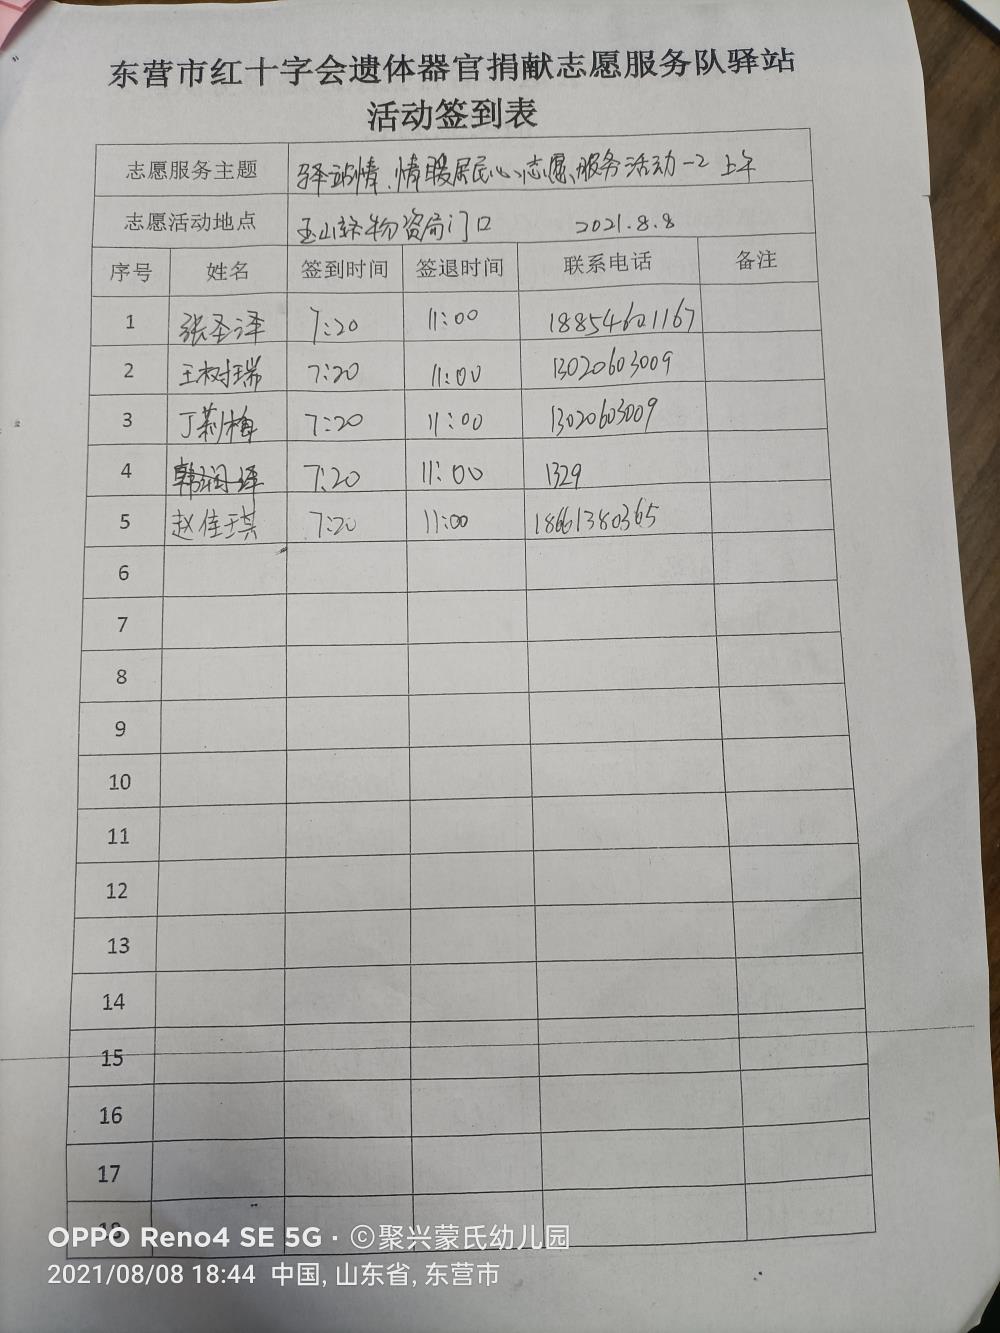 东营市红十字会遗体器官捐献志愿服务队驿站
活动签到表
志愿服务主题 驿站情、情暖居民心、志愿服务活动-2 上午
志愿活动地点 物资局门口 2021.8.8
序号 姓名 签到时间 签退时间 联系电话 备注
1 张圣泽 7:20 11:00 18854621167
2 王树瑞 7:20 11:00 13020603009
3 丁莉梅 7:20 11:00 13020603009
4 7:20 11:00 1329
5 赵佳琪 7:20 11:00 18661380365
6
7
8
9
10
11
12
13
14
15
16
17
18
OPPO Reno4 SE 5G · ©聚兴蒙氏幼儿园
2021/08/08 18:44 中国, 山东省, 东营市